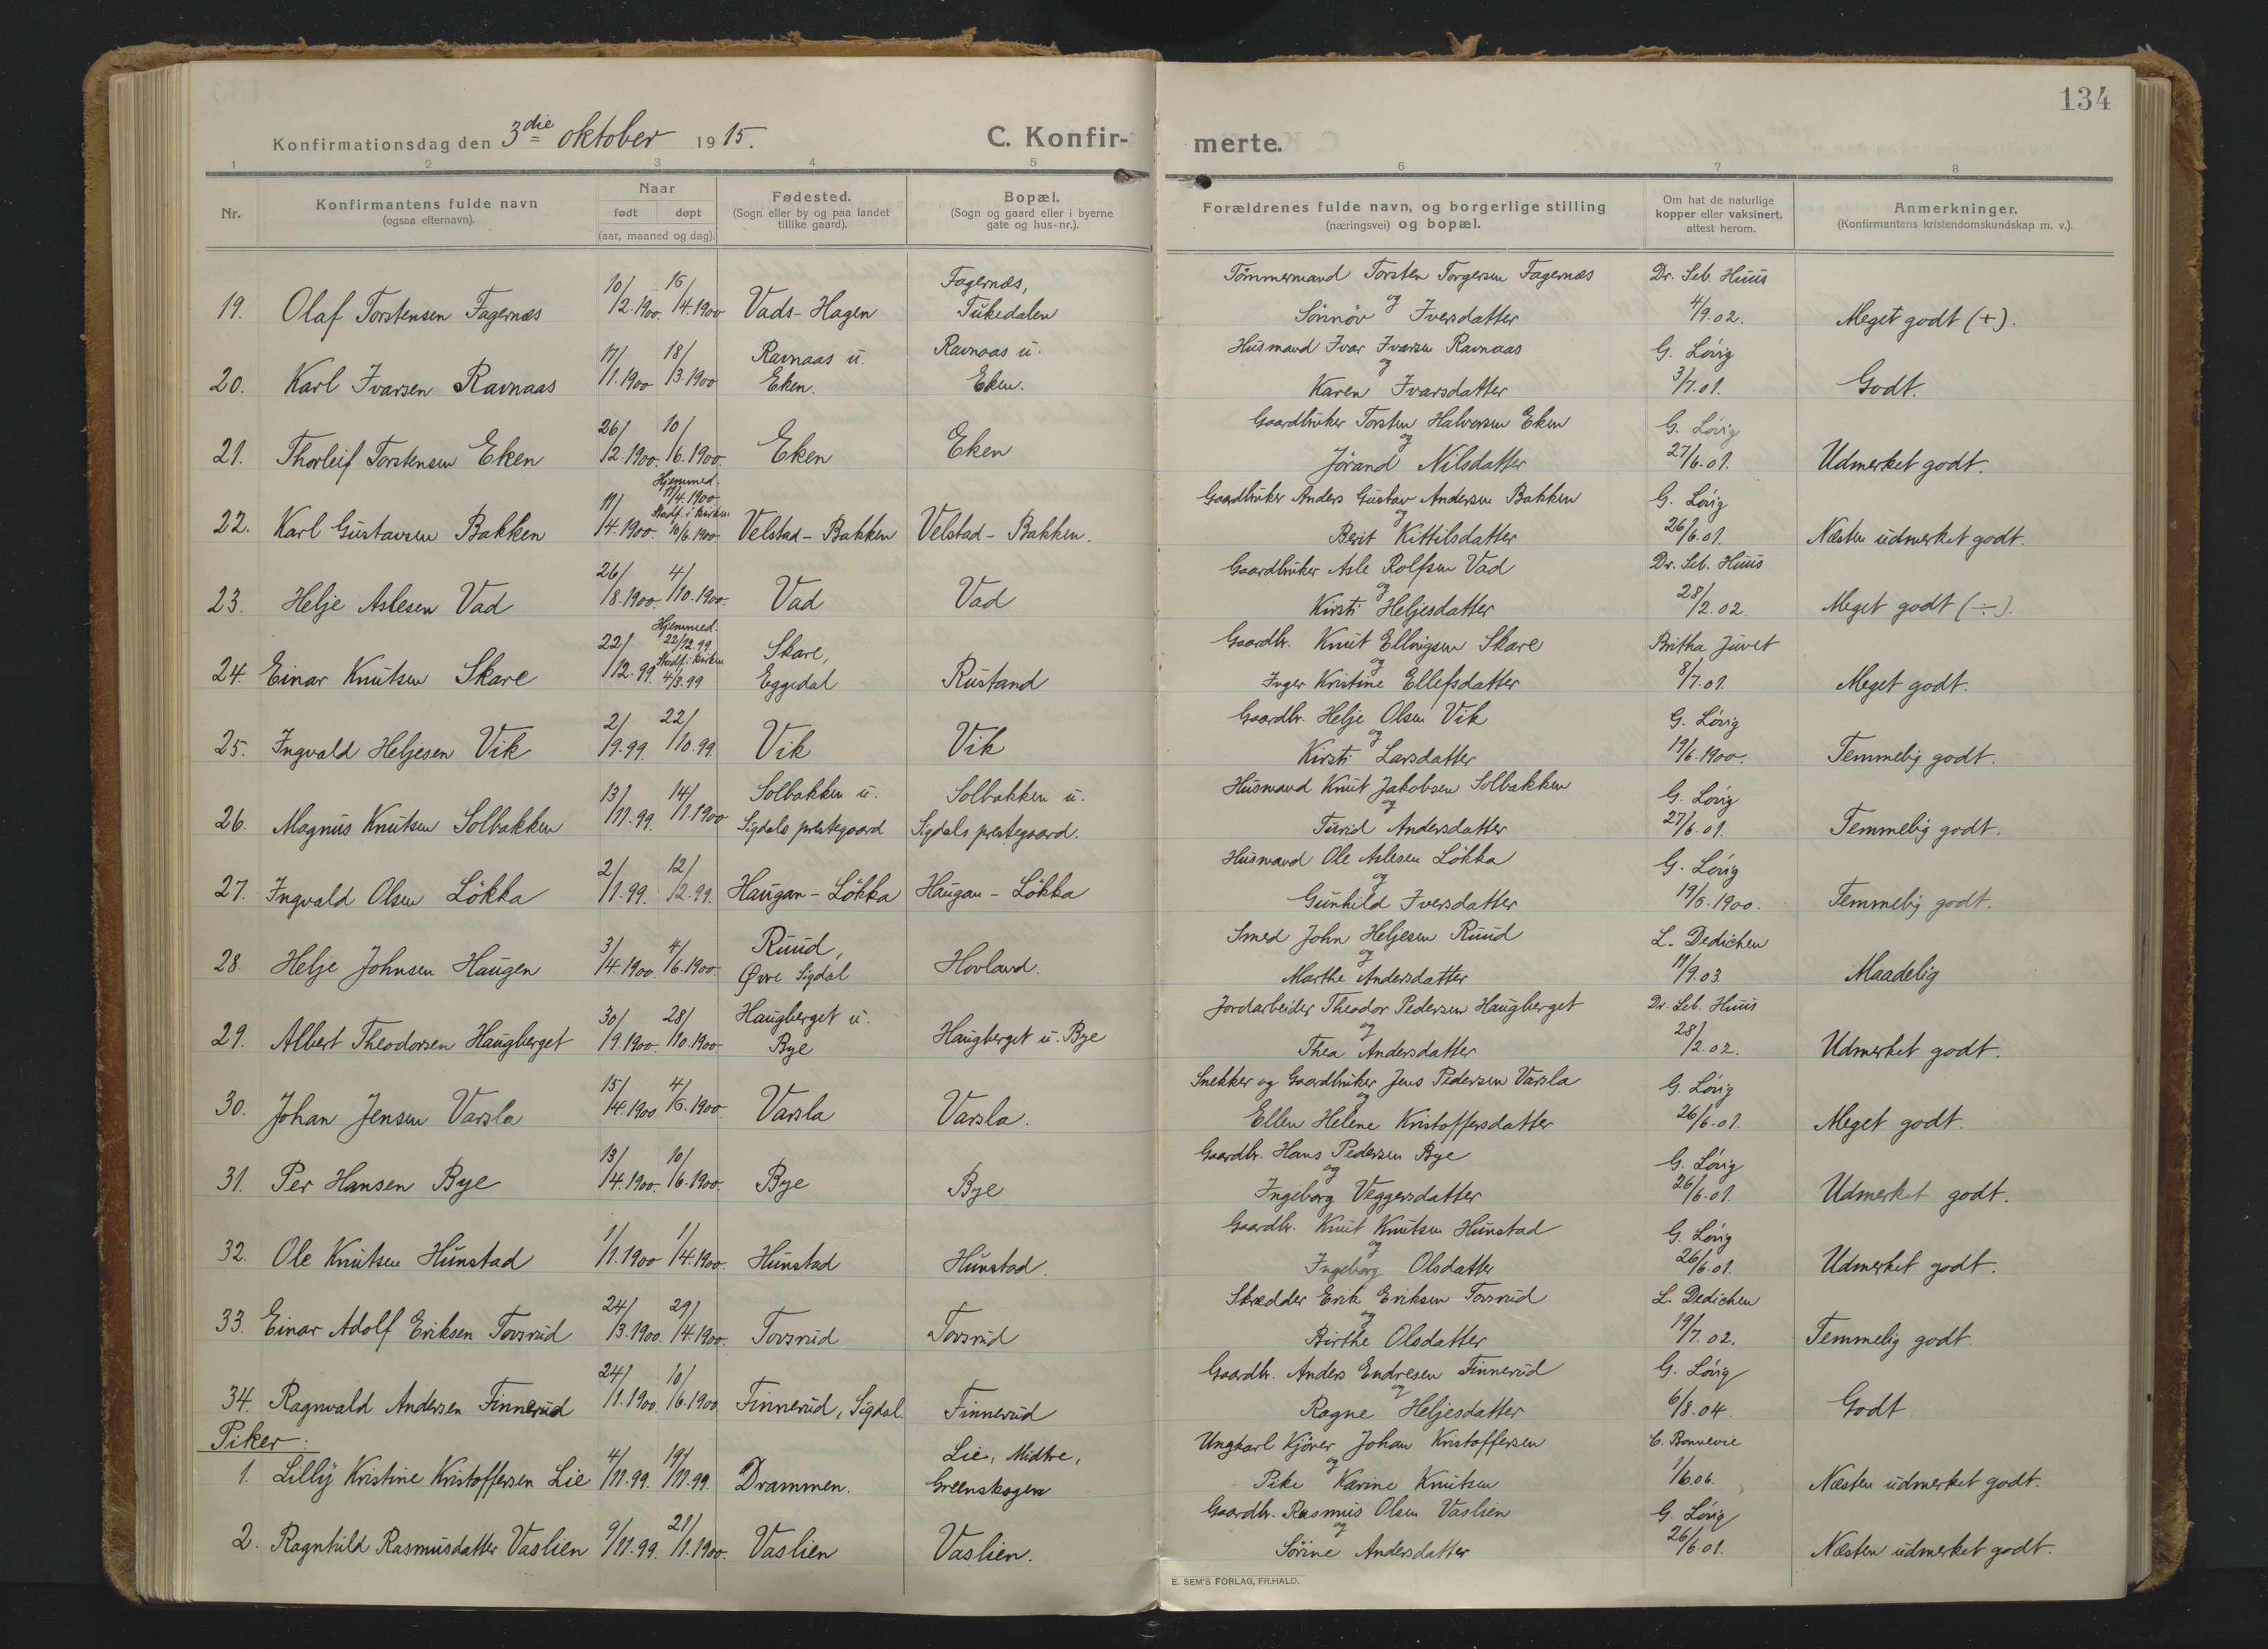 134
Konfirmationsdag den 3die oktober 1915.
C. Konfir-
merte.
1 2 3 4 5 6 7 8
Nr.
Konfirmantens fulde navn
(ogsaa efternavn).
Naar
født døpt
(aar, maaned og dag).
Fødested.
(Sogn eller by og paa landet
tillike gaard).
Bopæl.
(Sogn og gaard eller i byerne
gate og hus-nr.).
Forældrenes fulde navn, og borgerlige stilling
(næringsvei) og bopæl.
Om hat de naturlige
kopper eller vaksinert,
attest herom.
Anmerkninger.
(Konfirmantens kristendomskundskap m. v.).
Fagernæs, Tømmermand Torsten Torgersen Fagernæs Dr. Seb. Huus
19. Olaf Torstensen Fagernæs 10/2.1900. 16/4.1900 Vads-Hagen Tukedalen og Sønnøv Iversdatter 4/9.02. Meget godt (+).
Ravnaas u. Ravnaas u. Husmand Ivar Ivarsen Ravnaas G. Løvig
20. Karl Ivarsen Ravnaas 17/1.1900 18/3.1900 Eken. Eken. og Karen Ivarsdatter 3/7.01. Godt.
Gaardbruker Torsten Halvorsen Eken G. Løvig
21. Thorleif Torstensen Eken 26/2.1900. 10/6.1900. Eken Eken og Jørand Nilsdatter 27/6.01. Udmerket godt.
Hjemmed. 11/4.1900 Gaardbruker Anders Gustav Andersen Bakken G. Løvig
Stadf. i kirken
22. Karl Gustavsen Bakken 11/4.1900. 10/6.1900 Velstad-Bakken Velstad-Bakken. og Berit Kittilsdatter 26/6.01. Næsten udmerket godt.
Gaardbruker Asle Rolfsen Vad Dr. Seb. Huus
23. Helje Aslesen Vad 26/8.1900. 4/10.1900. Vad Vad og Kirsti Heljesdatter 28/2.02. Meget godt (÷).
Hjemmed. 22/12.99. Skare, Gaardbr. Knut Ellingsen Skare Britha Juvet
Stadf. i kirken
24. Einar Knutsen Skare 22/12.99. 4/3.99 Eggedal Rustand og Inger Kristine Ellefsdatter 8/7.01. Meget godt.
Gaardbr. Helje Olsen Vik G. Løvig
25. Ingvald Heljesen Vik 2/9.99. 22/10.99. Vik Vik og Kirsti Larsdatter 19/6.1900. Temmelig godt.
Solbakken u. Solbakken u. Husmand Knut Jakobsen Solbakken G. Løvig
26. Magnus Knutsen Solbakken 13/11.99. 14/1.1900 Sigdals prestegaard Sigdals prestegaard. og Turid Andersdatter 27/6.01. Temmelig godt.
Husmand Ole Aslesen Løkka G. Løvig
27. Ingvald Olsen Løkka 2/1.99. 12/2.99. Haugan-Løkka Haugan-Løkka og Gunhild Iversdatter 19/6.1900. Temmelig godt.
Ruud, Smed John Heljesen Ruud L. Dedichen
28. Helje Johnsen Haugen 3/4.1900. 4/6.1900. Øvre Sigdal Hovland. og Marthe Andersdatter 11/9.03. Maadelig
Haugberget u. Jordarbeider Theodor Pedersen Haugberget Dr. Seb. Huus
29. Albert Theodorsen Haugberget 30/9.1900. 28/10.1900. Bye Haugberget u. Bye og Thea Andersdatter 28/2.02. Udmerket godt.
Snekker og Gaardbruker Jens Pedersen Varsla G. Løvig
30. Johan Jensen Varsla 15/4.1900. 4/6.1900. Varsla Varsla. og Ellen Helene Kristoffersdatter 26/6.01. Meget godt.
Gaardbr. Hans Pedersen Bye G. Løvig
31. Per Hansen Bye 13/4.1900. 10/6.1900. Bye Bye og Ingeborg Veggersdatter 26/6.01. Udmerket godt.
Gaardbr. Knut Knutsen Hunstad G. Løvig
32. Ole Knutsen Hunstad 1/1.1900 1/4.1900. Hunstad Hunstad. og Ingeborg Olsdatter 26/6.01. Udmerket godt.
Skrædder Erik Eriksen Tovsrud L. Dedichen
33. Einar Adolf Eriksen Tovsrud 24/3.1900. 29/4.1900. Tovsrud Tovsrud og Birthe Olsdatter 19/7.02. Temmelig godt.
Gaardbr. Anders Endresen Finnerud G. Løvig
34. Ragnvald Andersen Finnerud 24/1.1900. 10/6.1900 Finnerud, Sigdal. Finnerud og Ragne Heljesdatter 6/8.04. Godt
Piker:
Lie, Midtre, Ungkarl Kjører Johan Kristoffersen C. Bonnevie
1. Lilly Kristine Kristoffersen Lie 4/11.99. 19/11.99. Drammen. Greenskogen og Pike Karine Knutsen 1/6.06. Næsten udmerket godt.
Gaardbr. Rasmus Olsen Vaslien G. Løvig
2. Ragnhild Rasmusdatter Vaslien 9/11.99. 21/1.1900. Vaslien Vaslien. og Sørine Andersdatter 26/6.01. Næsten udmerket godt.
E. SEM'S FORLAG, FR.HALD.